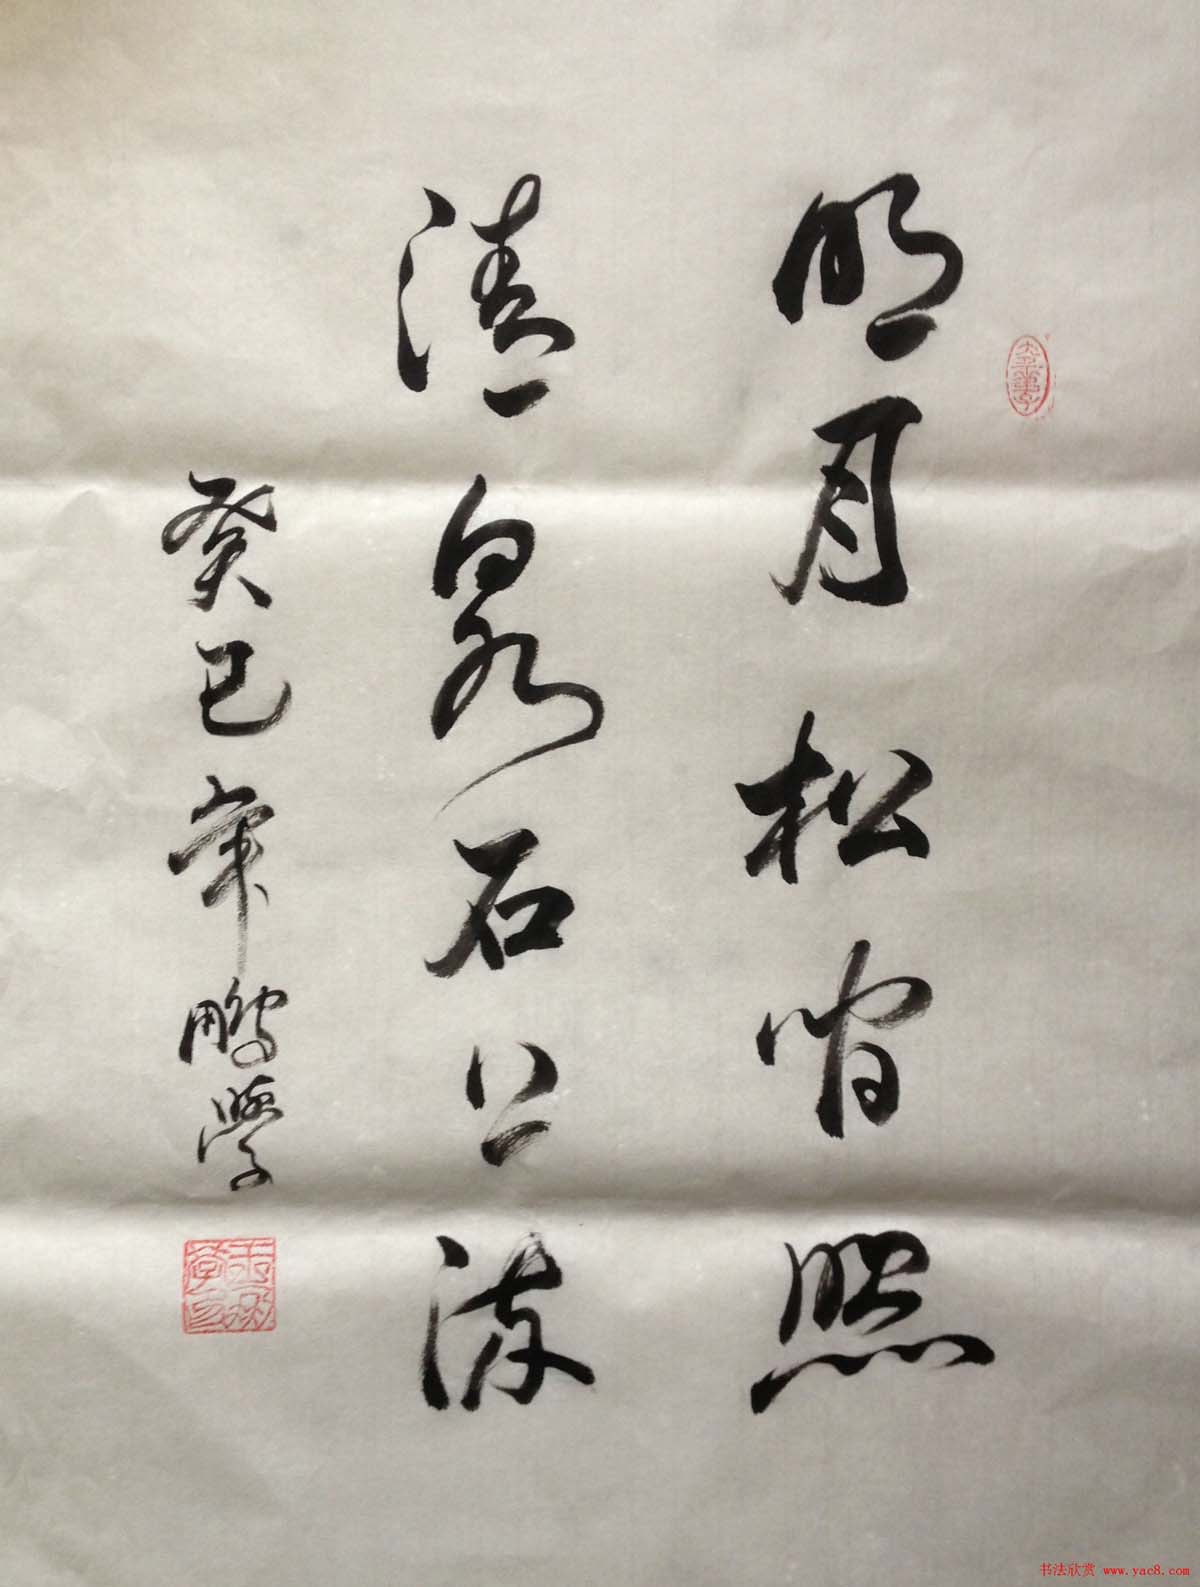 明月松间照
清泉石上流
癸巳年鹏学
书法欣赏 www.yac8.com